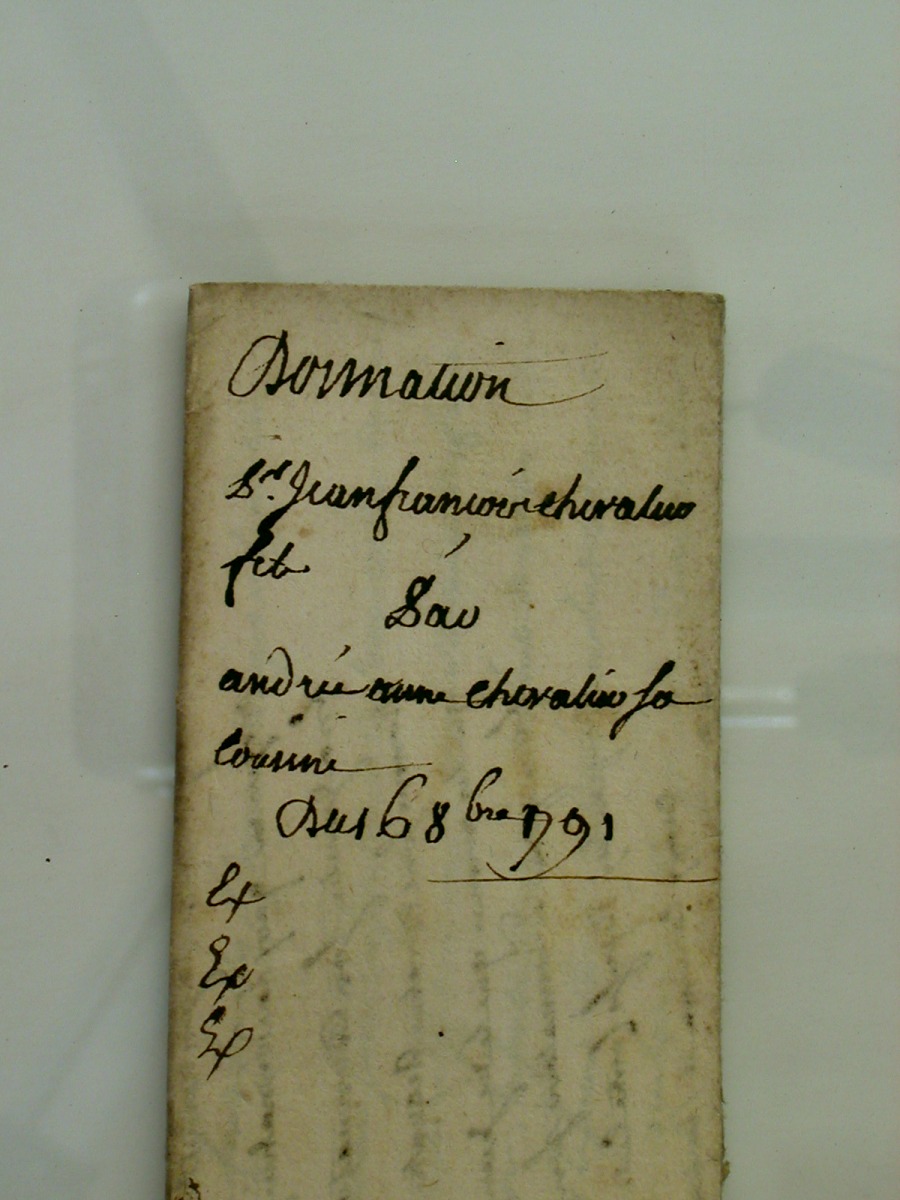 Donnation
Sr. Jean françois chevalier
fet
Par
andrée anne chevalier sa
cousine
Du 16 8bre 1791
Ex
Ex
Ex